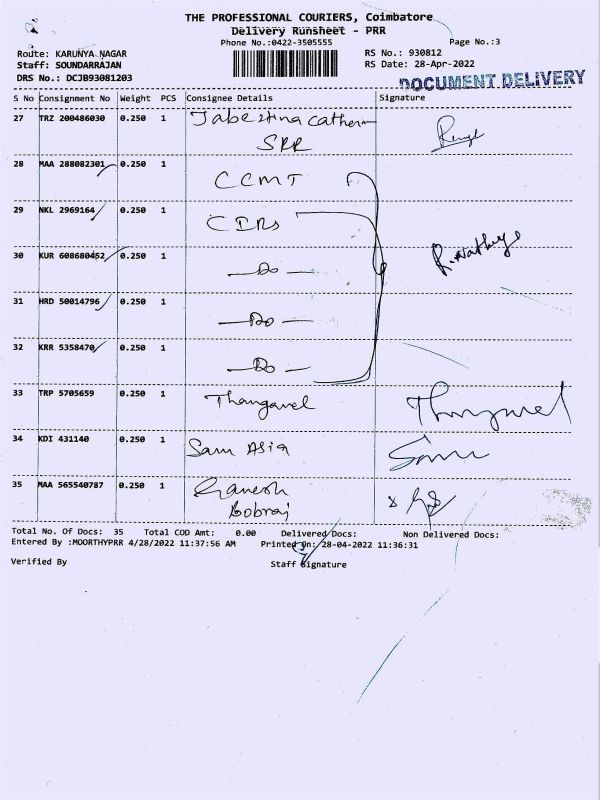 THE PROFESSIONAL COURIERS, Coimbatore
Delivery Runsheet - PRR
Phone No.:0422-3505555
Page No.:3
Route: KARUNYA NAGAR
RS No.: 930812
Staff: SOUNDARRAJAN
RS Date: 28-Apr-2022
DRS No.: DCJB93081203
DOCUMENT DELIVERY
S No Consignment No Weight PCS Consignee Details Signature
27 TRZ 200486030 0.250 1 Jabestina Catherin
SRR
28 MAA 288082301 0.250 1 CCMT
29 NKL 2969164 0.250 1 CIRS
30 KUR 608680452 0.250 1 — Do —
31 HRD 50014796 0.250 1 — Do —
32 KRR 5358470 0.250 1 — Do —
33 TRP 5705659 0.250 1 Thangavel
34 KDI 431140 0.250 1 Sam Asia Sam
35 MAA 565540787 0.250 1 Ganesh
Bobraj
Total No. Of Docs: 35 Total COD Amt: 0.00 Delivered Docs: Non Delivered Docs:
Entered By :MOORTHYPRR 4/28/2022 11:37:56 AM Printed On: 28-04-2022 11:36:31
Verified By Staff Signature